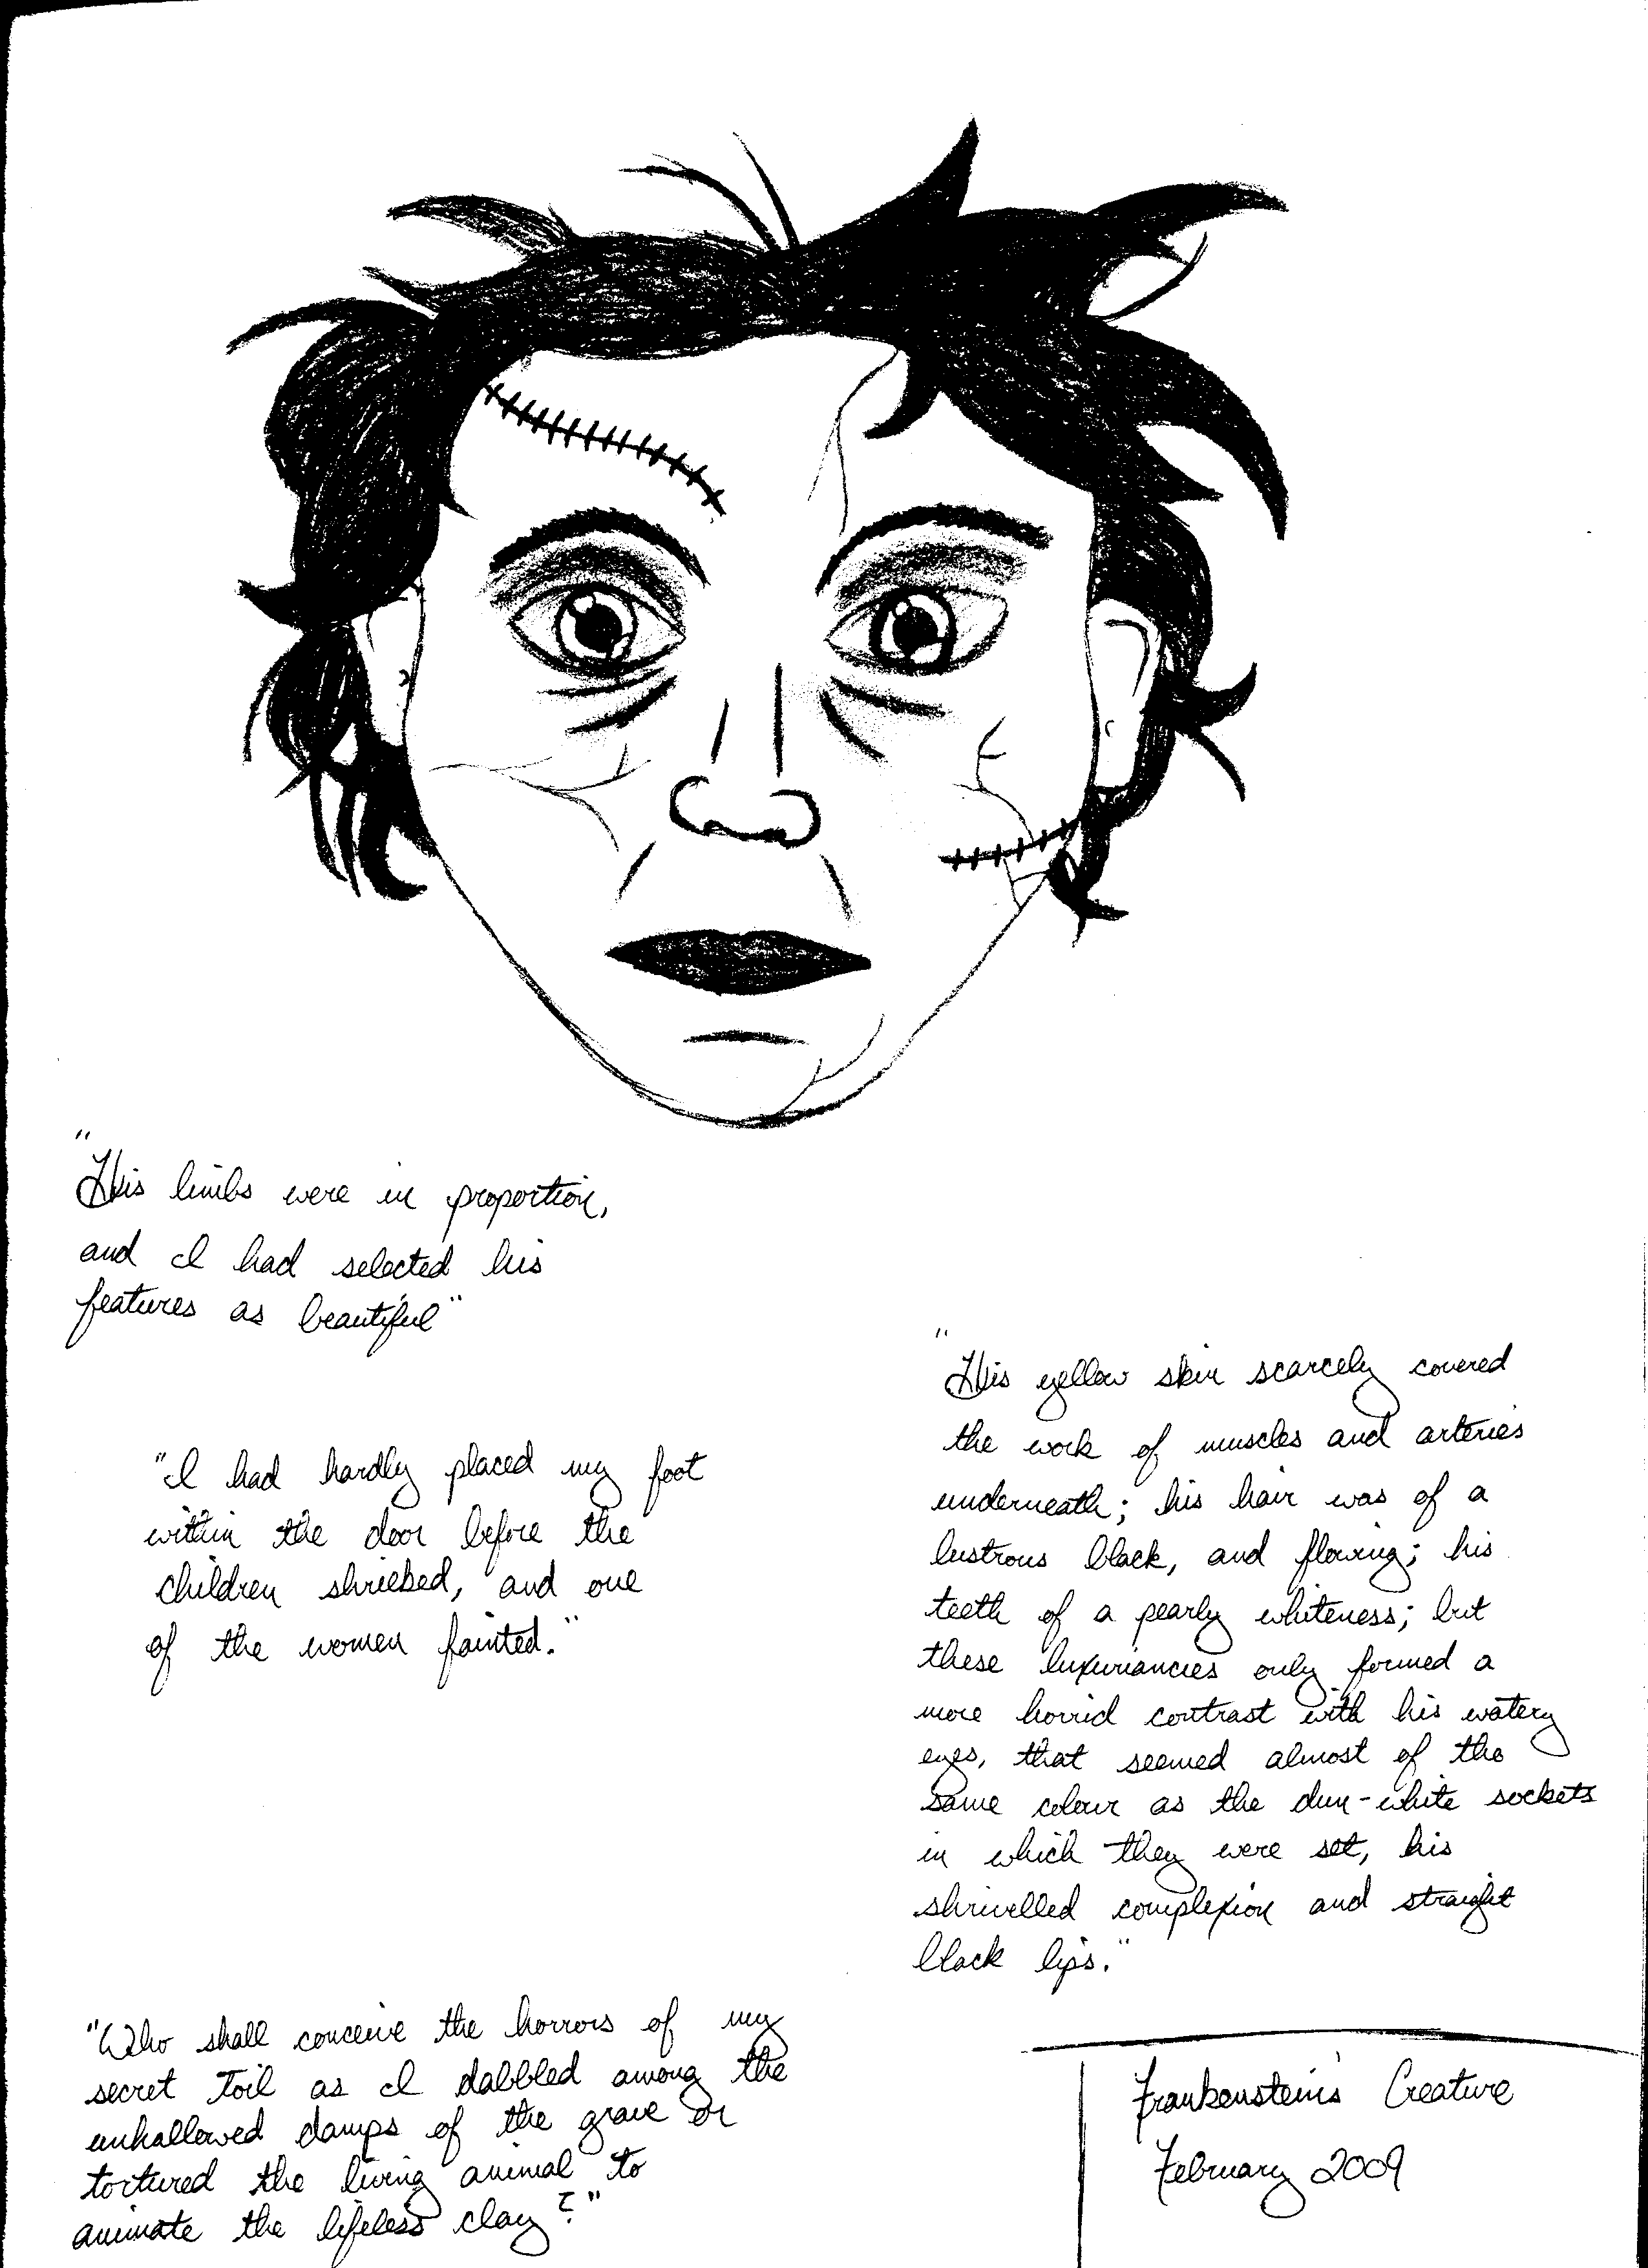 "His limbs were in proportion,
and I had selected his
features as beautiful"
"I had hardly placed my foot
within the door before the
children shrieked, and one
of the women fainted."
"His yellow skin scarcely covered
the work of muscles and arteries
underneath; his hair was of a
lustrous black, and flowing; his
teeth of a pearly whiteness; but
these luxuriancies only formed a
more horrid contrast with his watery
eyes, that seemed almost of the
same colour as the dun-white sockets
in which they were set, his
shrivelled complexion and straight
black lips."
"Who shall conceive the horrors of my
secret toil as I dabbled among the
unhallowed damps of the grave or
tortured the living animal to
animate the lifeless clay?"
Frankenstein's Creature
February 2009